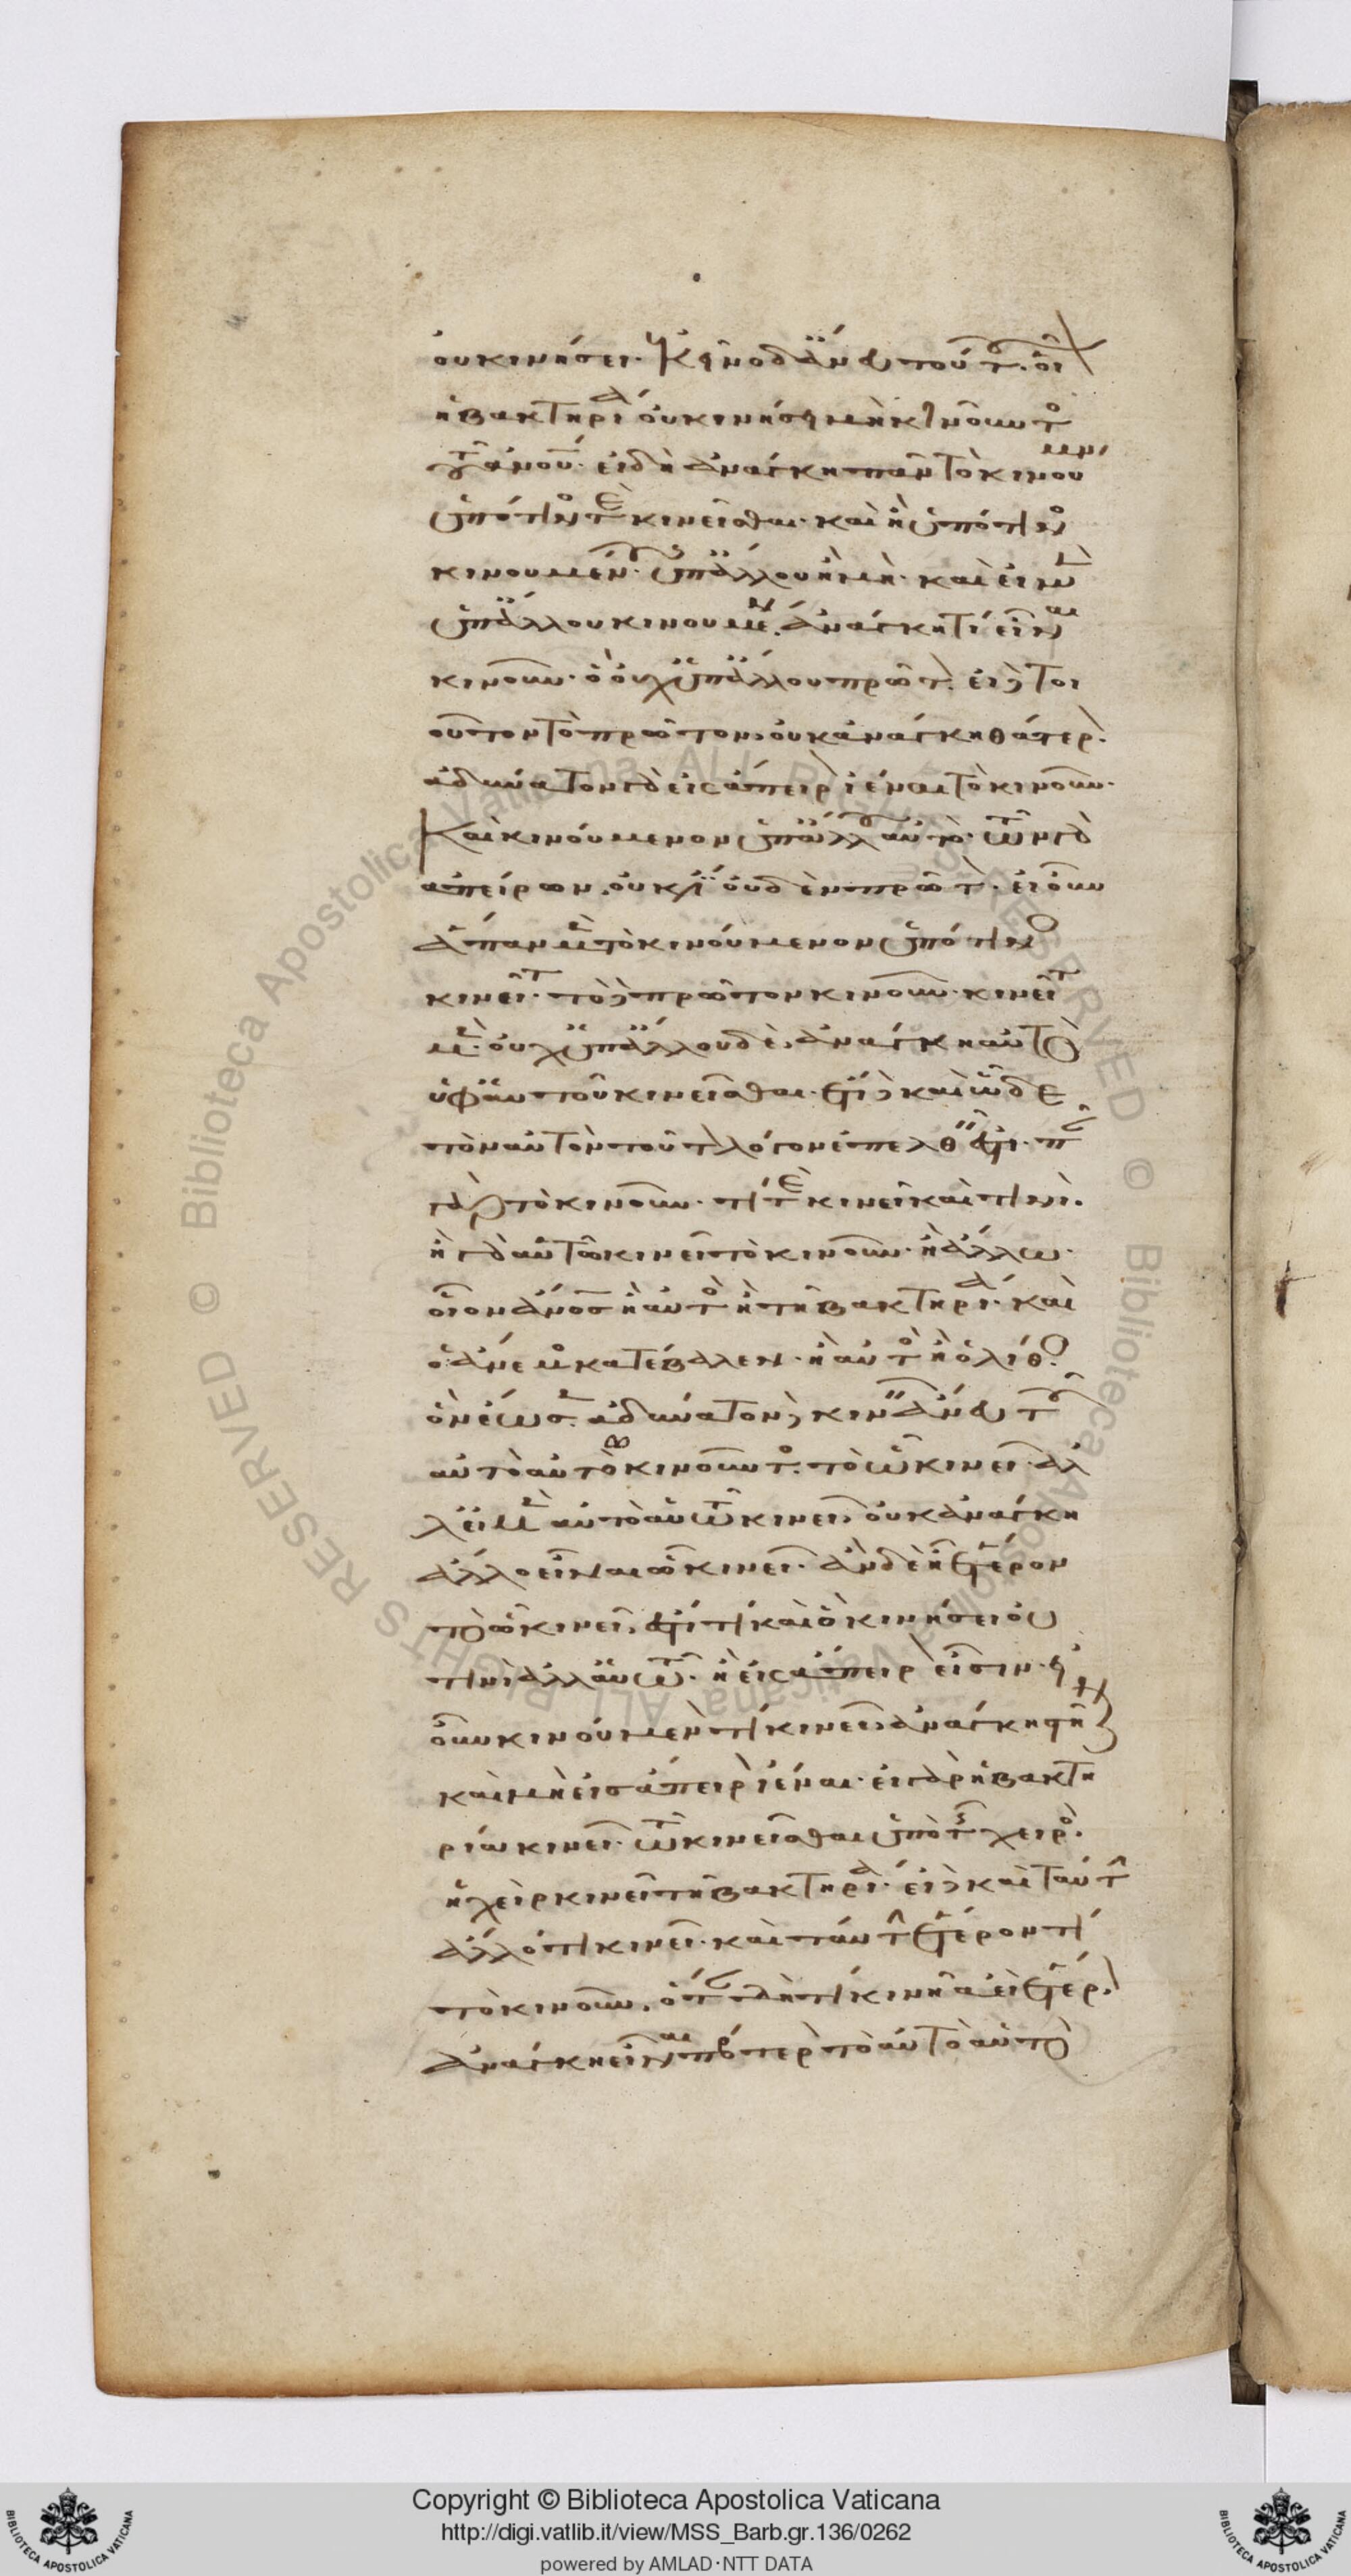 οὐ κινήσει· κἀκεῖνο δ' ἄνευ τούτου· οἷον
ἡ βακτηρία οὐ κινήσει μὴ κινοῦντος
τοῦ ἀνοῦ· εἰ δὴ ἀνάγκη πᾶν τὸ κινούμενον
ὑπό τινός τε κινεῖσθαι· καὶ ἢ ὑπό τινος
κινουμένου ὑπ' ἄλλου ἢ μή· καὶ εἰ μὲν
ὑπ' ἄλλου κινουμένου· ἀνάγκη τί εἶναι
κινοῦν· ὃ οὐχ ὑπ' ἄλλου πρῶτον· εἰ δὲ τοι
οῦτον τὸ πρῶτον, οὐκ ἀνάγκη θάτερον·
ἀδύνατον γὰρ εἰς ἄπειρον ἰέναι τὸ κινοῦν·
καὶ κινούμενον ὑπ' ἄλλου αὐτό· τῶν γὰρ
ἀπείρων, οὐκ ἔστιν οὐδὲν πρῶτον· εἰ οὖν
ἅπαν μὲν τὸ κινούμενον ὑπό τινος
κινεῖται· τὸ δὲ πρῶτον κινοῦν· κινεῖται
μέν· οὐχ ὑπ' ἄλλου δέ, ἀνάγκη αὐτὸ
ὑφ' αὑτοῦ κινεῖσθαι· ἔτι δὲ καὶ ὧδε
τὸν αὐτὸν τοῦτον λόγον ἐπελθεῖν ἔστι· πᾶν
γὰρ τὸ κινοῦν· τί τε κινεῖ καὶ τινί·
ἢ γὰρ αὑτῶ κινεῖ τὸ κινοῦν· ἢ ἄλλω·
οἷον ἄνος ἢ αὐτὸς ἢ τῆ βακτηρία· καὶ
ὁ ἄνεμος κατέβαλεν· ἢ αὐτὸς ἢ ὁ λίθος
ὃν ἔωσεν· ἀδύνατον δὲ κινεῖν ἄνευ τοῦ
αὐτὸ αὑτῶ κινοῦντος· τὸ ὧ κινεῖ· ἀλ
λ' εἰ μὲν αὐτὸ αὑτῶ κινεῖ, οὐκ ἀνάγκη
ἄλλο εἶναι ὧ κινεῖ· ἂν δὲ ἦ ἕτερον
τὸ ὧ κινεῖ, ἔστι τί καὶ ὃ κινήσει οὐ
τινὶ ἀλλ' αὑτῶ· ἢ εἰς ἄπειρον εἶσιν· εἰ
οὖν κινούμενόν τι κινεῖ, ἀνάγκη στῆναι
καὶ μὴ εἰς ἄπειρον ἰέναι· εἰ γὰρ ἡ βακτη
ρία κινεῖ· τῶ κινεῖσθαι ὑπὸ τῆς χειρός·
ἡ χεὶρ κινεῖ τὴν βακτηρίαν· εἰ δὲ καὶ ταύτη
ἄλλό τι κινεῖ· καὶ ταύτην ἕτερόν τι
τὸ κινοῦν, ὅταν δή τι κινῆ ἀεὶ ἕτερον
ἀνάγκη εἶναι πρότερον τὸ αὐτὸ αὑτῶ
Copyright © Biblioteca Apostolica Vaticana
http://digi.vatlib.it/view/MSS_Barb.gr.136/0262
powered by AMLAD·NTT DATA